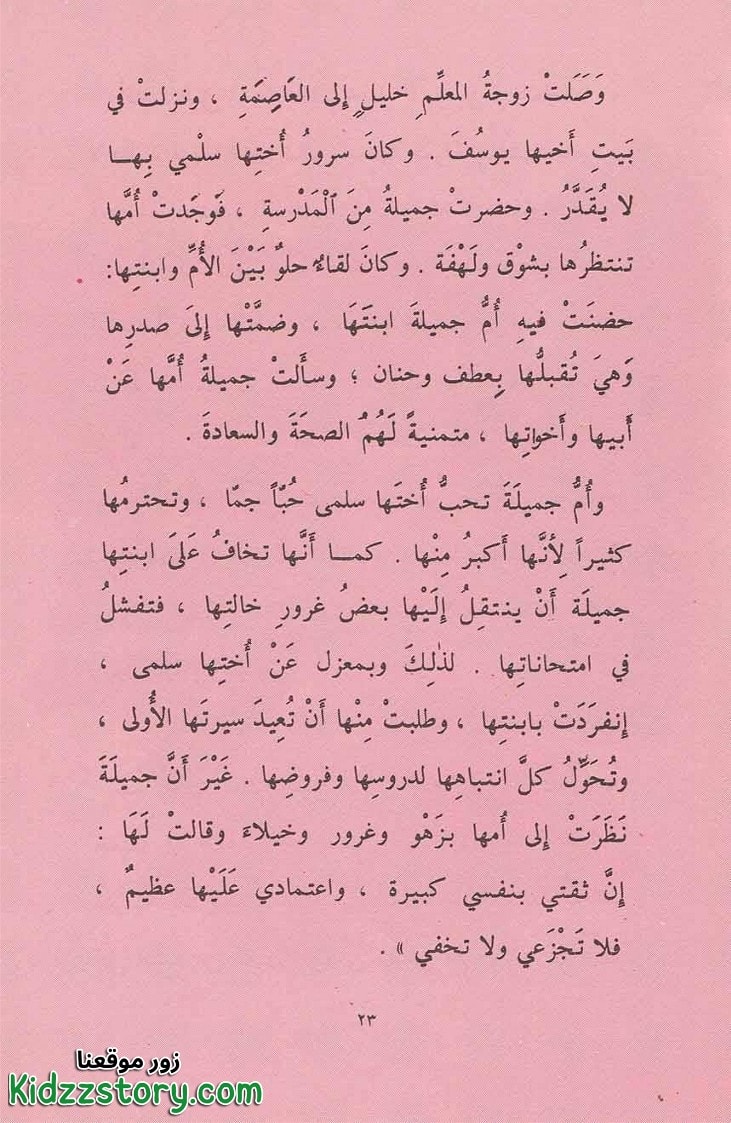 وَصَلَتْ زوجةُ المعلِّمِ خليلٍ إِلى العَاصِمَةِ ، ونزلتْ في
بَيتِ أَخيها يوسُفَ . وكانَ سرورُ أُختِها سلْمي بِهـا
لا يُقَدَّرُ . وحضرتْ جميلةُ مِنَ ٱلْمَدْرسةِ ، فَوجَدتْ أُمَّها
تنتظرُها بشوْق ولَهْفَة . وكانَ لقاءٌ حلوٌ بَيْنَ الأُمِّ وابنتِها:
حضنَتْ فيهِ أُمُّ جميلةَ ابنتَهَا ، وضمَّتْها إِلىَ صدرِها
وَهيَ تُقبلُّها بِعطف وحنان ؛ وسأَلتْ جميلةُ أُمَّها عَنْ
أَبيها وأَخواتِها ، متمنيةً لَهُمُ الصحَةَ والسعادةَ .
وأُمُّ جميلَةَ تحبُّ أُختَها سلمى حُبّاً جمّا ، وتحترمُها
كثيراً لِأَنَّها أَكبرُ مِنْها . كمـا أَنَّها تخافُ عَلىَ ابنتِها
جميلَة أَنْ ينتقِلُ إِلَيْها بعضُ غرورِ خالتِها ، فتفشلُ
في امتحاناتِها . لذٰلِكَ وبمعزل عَنْ أُختِها سلمى ،
إِنفرَدَتْ بابنتِها ، وطلبتْ مِنْها أَنْ تُعِيدَ سيرتَها الأُولى ،
وتُحَوِّلُ كلَّ انتباهِها لدروسِها وفروضِها . غَيْرَ أَنَّ جميلَةَ
نَظَرَتْ إِلى أُمها بزَهْو وغرور وخيلاءَ وقالتْ لَهَا :
إِنَّ ثقتي بنفسي كبيرة ، واعتمادي عَلَيْها عظيمٌ ،
فلا تَجْزَعي ولا تخفي » .
٢٣
زور موقعنا
Kidzzstory.com